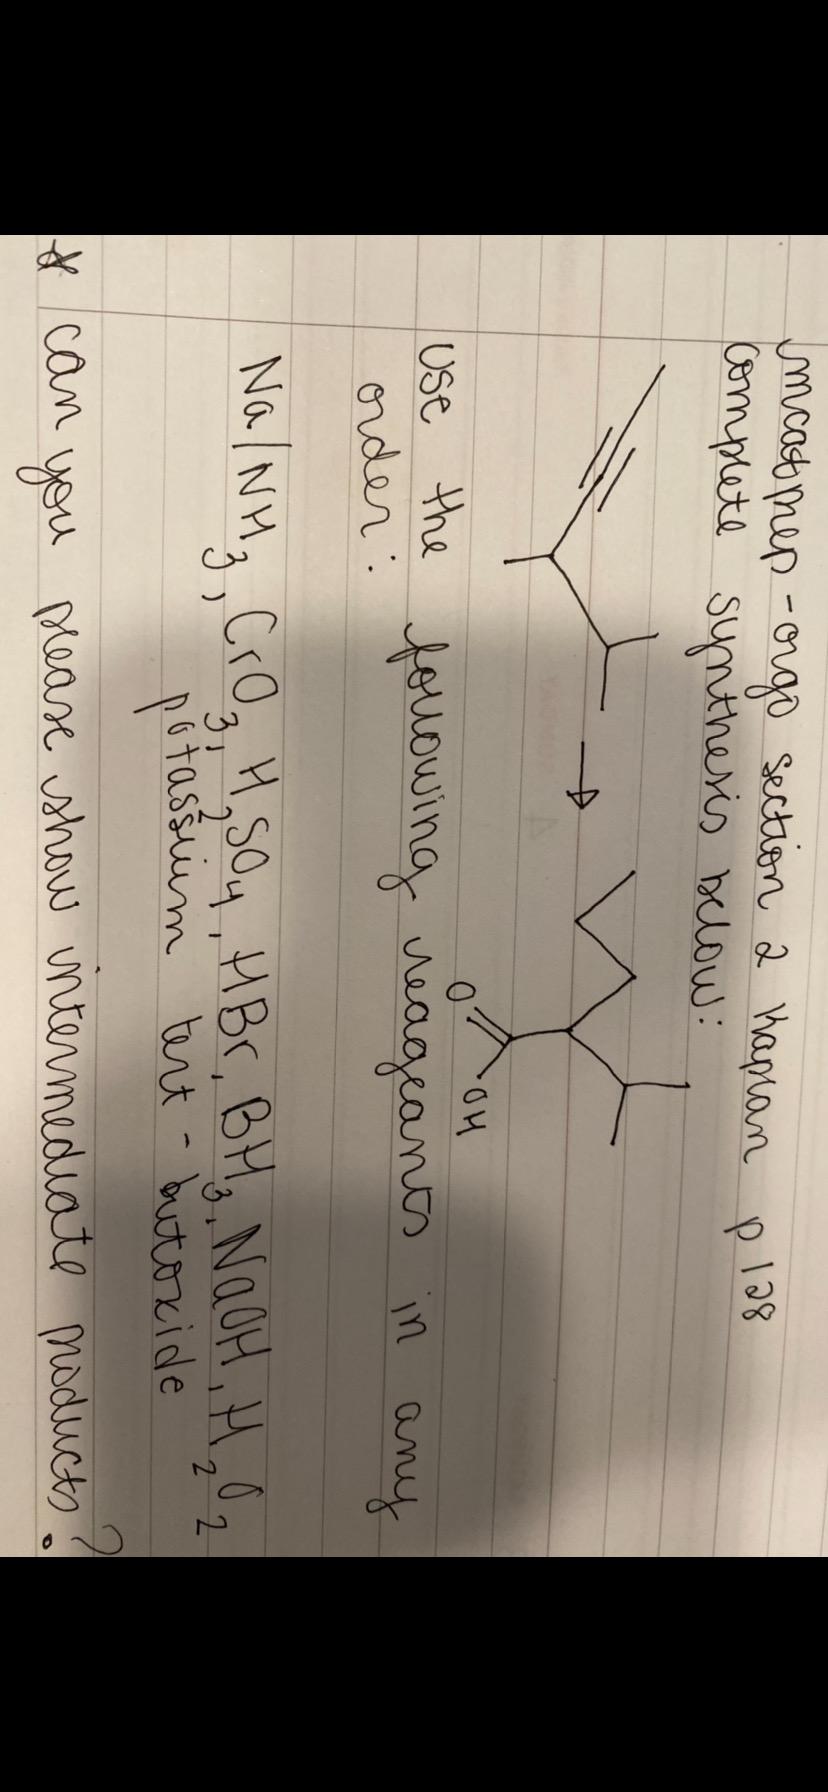 mcatprep-orgo section 2 Kaplan p 128
complete synthesis below:
O
OH
Use the following reageants in any
order:
Na/NH3, CrO3, H2SO4, HBr, BH3, NaOH, H2O2
potassium tert-butoxide
* can you please show intermediate products?